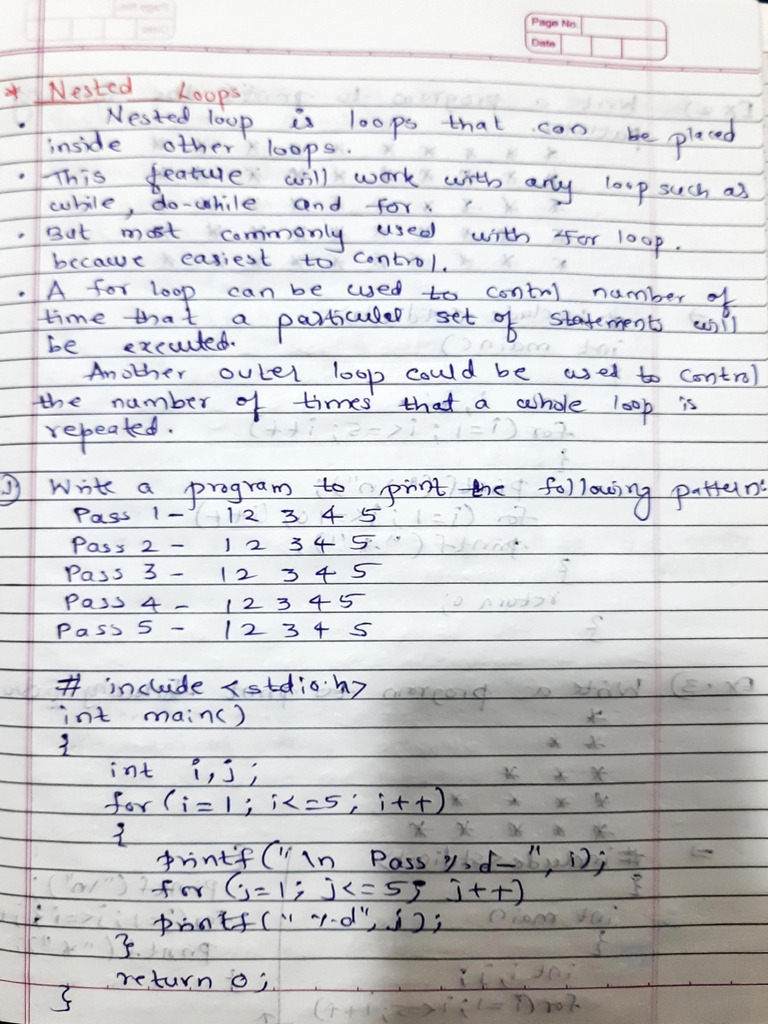 Page No.
Date
* Nested Loops
• Nested loop is loops that can be placed
inside other loops.
• This feature will work with any loop such as
while, do-while and for.
• But most commonly used with for loop.
because easiest to control.
• A for loop can be used to control number of
time that a particular set of statements will
be executed.
Another outer loop could be used to control
the number of times that a whole loop is
repeated.
1) Write a program to print the following pattern:
Pass 1 - 1 2 3 4 5
Pass 2 - 1 2 3 4 5
Pass 3 - 1 2 3 4 5
Pass 4 - 1 2 3 4 5
Pass 5 - 1 2 3 4 5
# include <stdio.h>
int main()
{
int i, j ;
for (i=1 ; i<=5 ; i++)
{
printf (" \n Pass %d-", i);
for (j=1; j<=5; j++)
printf (" %d", j);
}
return 0;
}